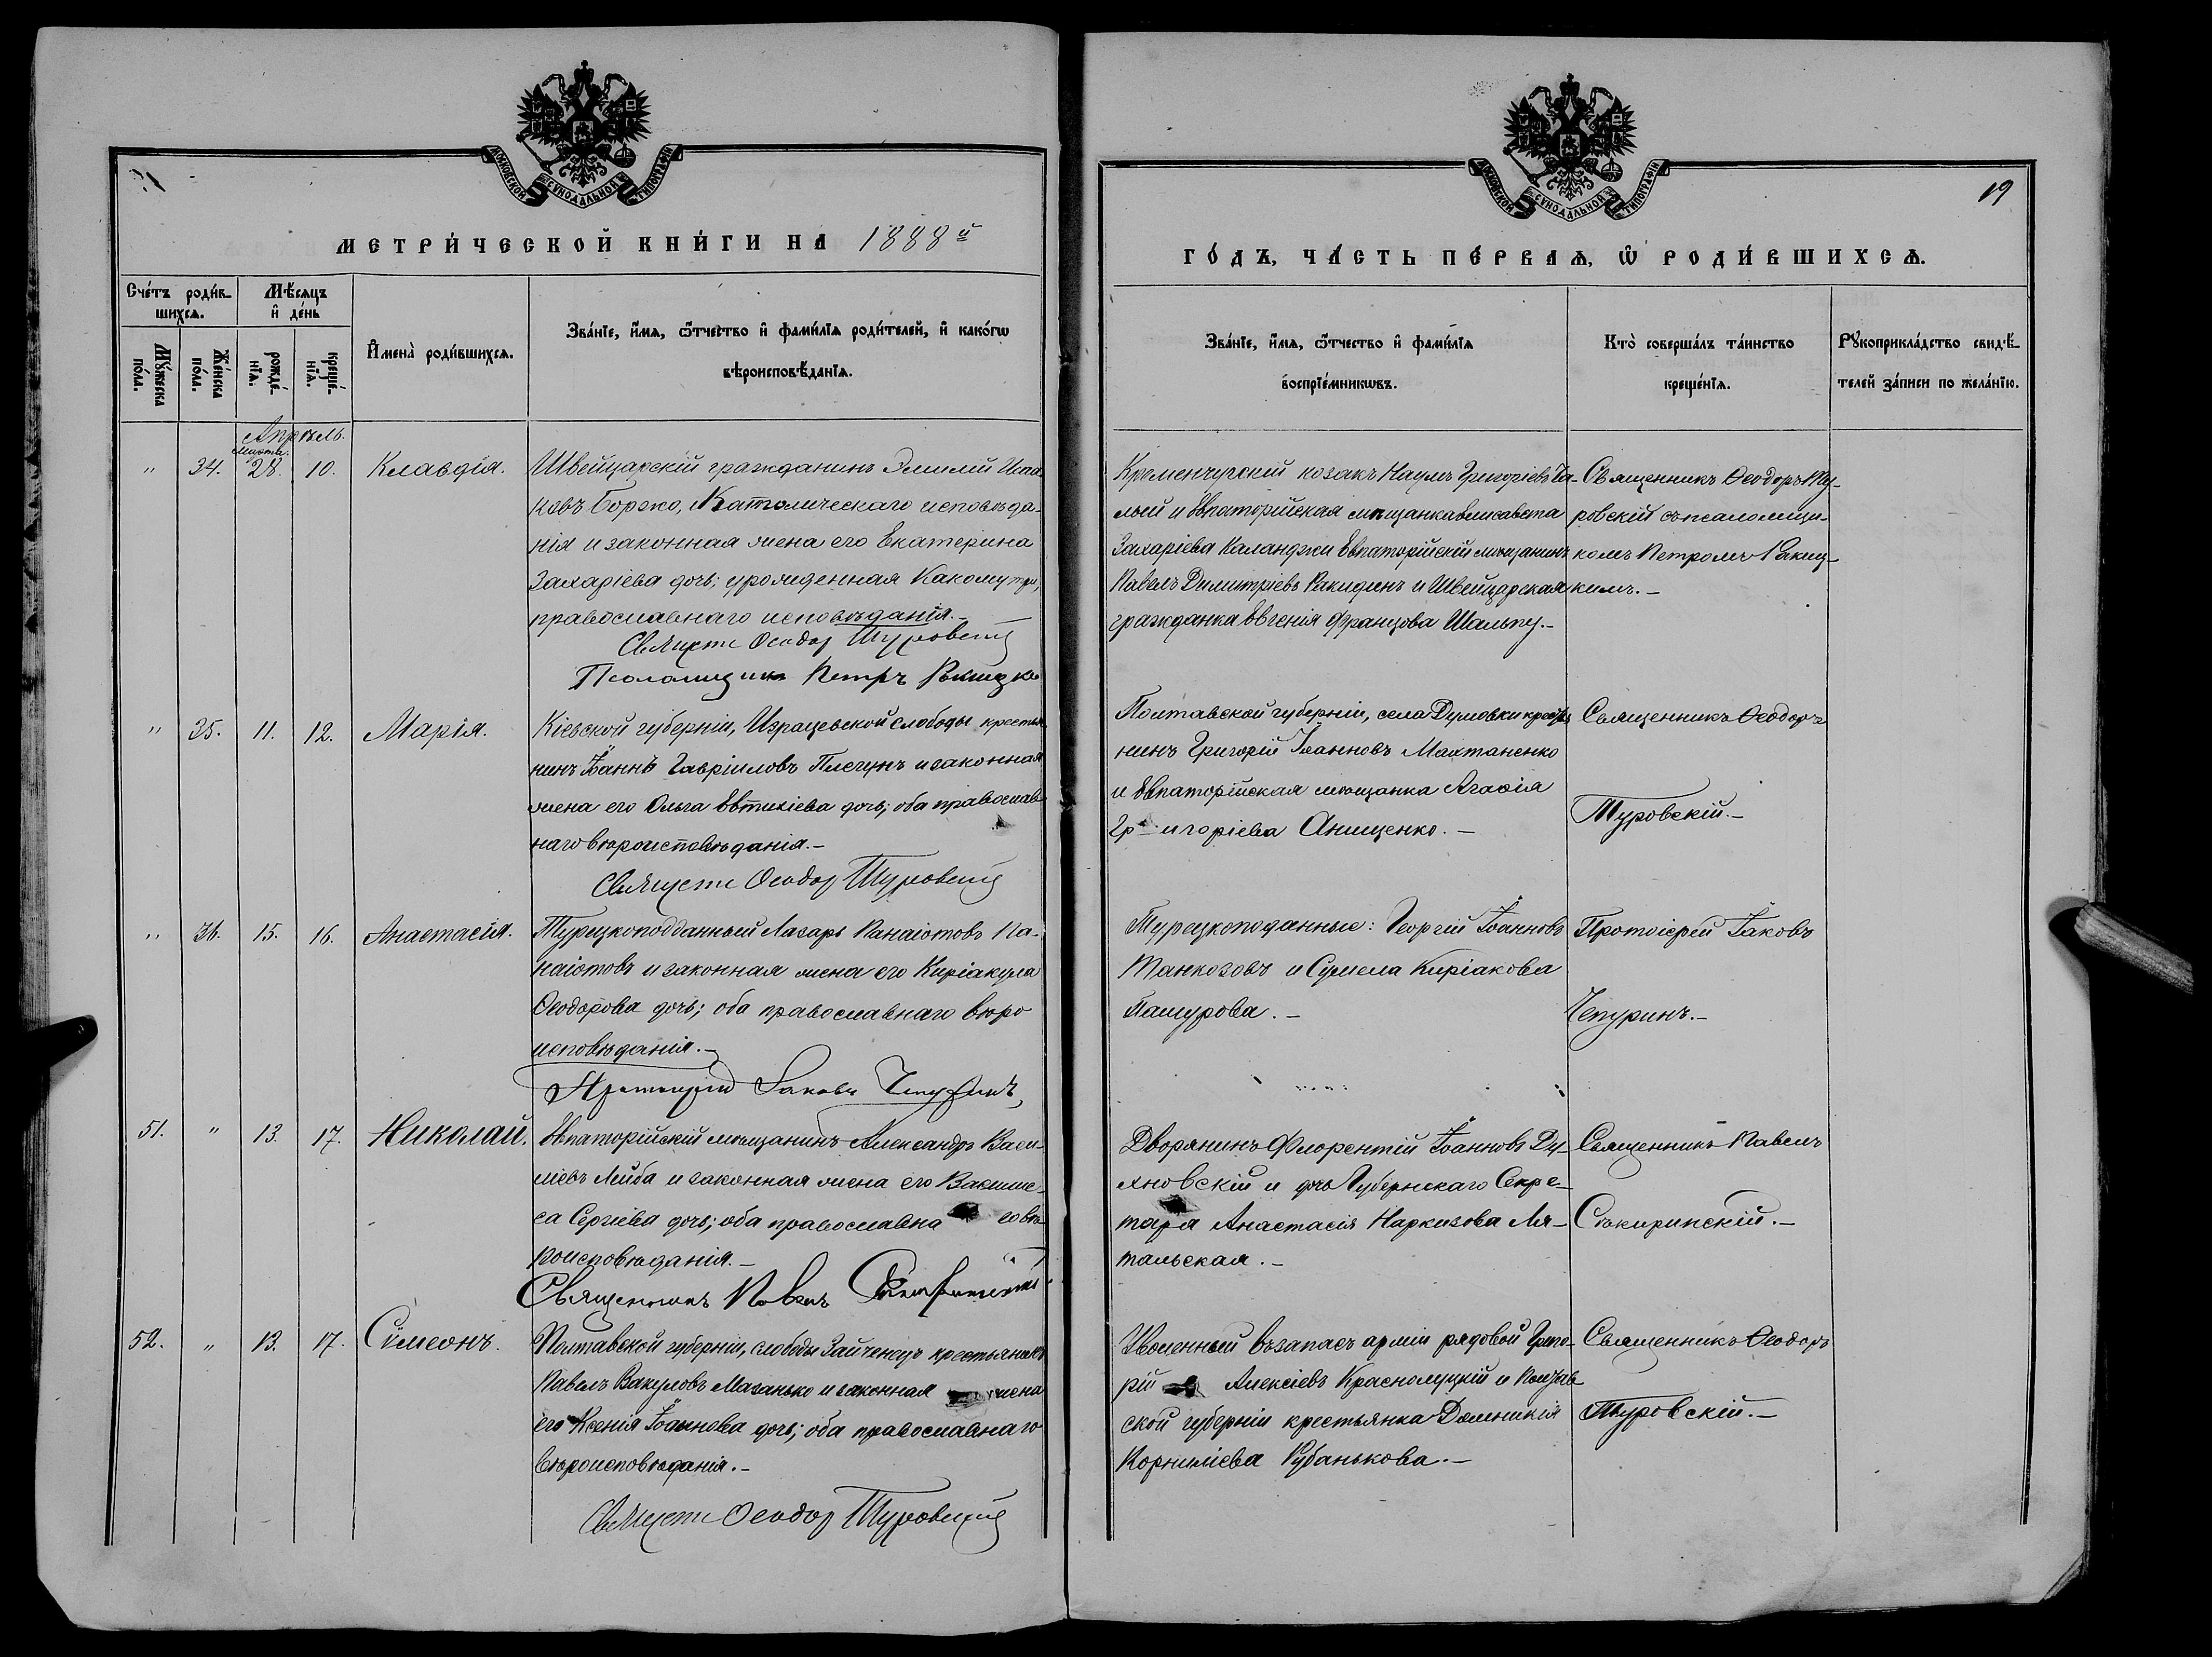 МОСКОВСКОЙ СѴНОДАЛЬНОЙ ТИПОГРАФІИ
МЕТРИ́ЧЕСКОЙ КНИ́ГИ НА 1888й
Сче́тъ роди́в-
шихсѧ.
Мѣ́сѧцъ
и҆ де́нь
Мꙋ́жеска
по́ла.
Же́нска
по́ла.
рожде́-
нїѧ.
креще́-
нїѧ.
И҆мена̀ роди́вшихсѧ.
Зва́нїе, и҆́мѧ, ѻ҆́тчество и҆ фами́лїѧ роди́телей, и҆ како́гѡ
вѣроисповѣ́данїѧ.
Апрѣль.
Марта.
" 34. 28. 10. Клавдія.
Швейцарскій гражданинъ Эмилій
ковъ Боржо, Католическаго исповѣда-
нія и законная жена его Екатерина
Захаріева дочь; урожденная Какомутри,
православнаго исповѣданія.-
Священн Ѳеодор Туровскій
Псаломщик Петръ Ракицкій
" 35. 11. 12. Марія.
Кіевской губерніи, слободы крестья-
нинъ Іоаннъ Гавріиловъ Плегунъ и законная
жена его Ольга Евтихіева дочь; оба православ-
наго вѣроисповѣданія.-
Священн Ѳеодор Туровскій
" 36. 15. 16. Анастасія.
Турецкоподданный Лазарь Панаіотовъ Па-
наіотовъ и законная жена его Киріакула
Ѳеодорова дочь; оба православнаго вѣро
исповѣданія.-
Протоіерей Іаковъ Чепуринъ
51. " 13. 17. Николай.
Евпаторійскій мѣщанинъ Александръ Васи-
ліевъ Лейба и законная жена его Василис-
са Сергіева дочь; оба православна го вѣ-
роисповѣданія.-
Священникъ Павелъ Сокиринскій
52. " 13. 17. Сѵмеонъ.
Полтавской губерніи, слободы Зайченецъ крестьянинъ
Павелъ Вакуловъ Мазанько и законная жена
его Ксенія Іоаннова дочь; оба православнаго
вѣроисповѣданія.-
Священн Ѳеодор Туровскій
МОСКОВСКОЙ СѴНОДАЛЬНОЙ ТИПОГРАФІИ
19
ГО́ДЪ, ЧА́СТЬ ПЕ́РВАѦ, Ѡ҆ РОДИ́ВШИХСѦ.
Зва́нїе, и҆́мѧ, ѻ҆́тчество и҆ фами́лїѧ
воспрїе́мникѡвъ.
Кто̀ соверша́лъ та́инство
креще́нїѧ.
Рꙋкоприкла́дство свидѣ́-
телей за́писи по жела́нїю.
Кременчугскій козакъ Наумъ Григоріевъ Га-
лый и Евпаторійская мѣщанка Елисавета
Захаріева Каланджи Евпаторійскій мѣщанинъ
Павелъ Димитріевъ Ракидинъ и Швейцарская
гражданка Евгенія Францова Шальпу.-
Священникъ Ѳеодоръ Ту-
ровскій съ псаломщи-
комъ Петромъ Ракиц-
кимъ.-
Полтавской губерніи, села Думовки крестья
нинъ Григорій Іоанновъ Махтаненко
и Евпаторійская мѣщанка Агаѳія
Гр игоріева Анищенко.-
Священникъ Ѳеодоръ
Туровскій.-
Турецкоподанные: Георгій Іоанновъ
Танкозовъ и Сумела Киріакова
Пашурова.-
Протоіерей Іаковъ
Чепуринъ.-
Дворянинъ Флорентій Іоанновъ Ду-
хновскій и дочь Губернскаго Секре-
таря Анастасія Наркизова Ля-
тальская.-
Священникъ Павелъ
Сокиринскій.-
Уволенный въ запасъ арміи рядовой Григо-
рій Алексіевъ Краснолуцкій и Полтав
ской губерніи крестьянка Домникія
Корниліева Кубанькова.-
Священникъ Ѳеодоръ
Туровскій.-